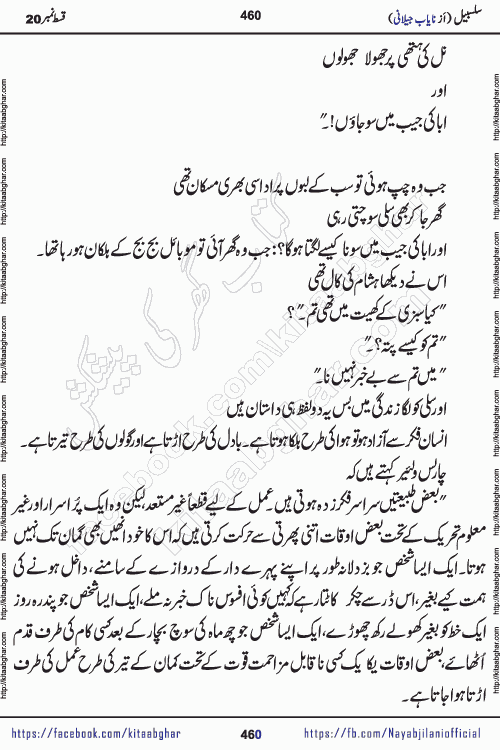 سلسبیل (از نایاب جیلانی)
460
قسط نمبر 20
نل کی ہتھی پر جھولا جھولوں
اور
ابا کی جیب میں سو جاؤں!۔"
جب وہ چپ ہوئی تو سب کے لبوں پر اداسی بھری مسکان تھی
گھر جا کر بھی سلی سوچتی رہی
اور ابا کی جیب میں سونا کیسے لگتا ہو گا؟: جب وہ گھر آئی تو موبائل بج بج کے ہلکان ہو رہا تھا۔
اس نے دیکھا ہشام کی کال تھی
"کیا سبزی کے کھیت میں تھی تم۔"؟
"تم کو کیسے پتہ؟۔"
"میں تم سے بے خبر نہیں نا۔"
اور سلی کو لگا زندگی میں بس یہ دو لفظ ہی داستان ہیں
انسان فکر سے آزاد ہو تو ہوا کی طرح ہلکا ہوتا ہے۔ بادل کی طرح اڑتا ہے اور گولوں کی طرح تیرتا ہے۔
چارلس ولیئر کہتے ہیں کہ
"بعض طبیعتیں سراسر فکر زدہ ہوتی ہیں۔ عمل کے لیے قطعاً غیر مستعد لیکن وہ ایک پُر اسرار اور غیر
معلوم تحریک کے تحت بعض اوقات اتنی پھرتی سے حرکت کرتی ہیں کہ اس کا خود انھیں بھی گمان تک نہیں
ہوتا۔ ایک ایسا شخص جو بزدلانہ طور پر اپنے پہرے دار کے دروازے کے سامنے، داخل ہونے کی
ہمت کیے بغیر، اس ڈر سے چکر کاٹتا رہے کہ کہیں کوئی افسوس ناک خبر نہ ملے، ایک ایسا شخص جو پندرہ روز
ایک خط کو بغیر کھولے رکھ چھوڑے، ایک ایسا شخص جو چھ ماہ کی سوچ بچار کے بعد کسی کام کی طرف قدم
اُٹھائے، بعض اوقات یکایک کسی ناقابل مزاحمت قوت کے تحت کمان کے تیر کی طرح عمل کی طرف
اڑتا ہوا جاتا ہے۔
کتاب گھر کی پیشکش
kitaabghar.com
facebook.com/kitaabghar
http://kitaabghar.com
http://kitaabghar.com
http://kitaabghar.com
http://kitaabghar.com
http://kitaabghar.com
http://kitaabghar.com
http://kitaabghar.com
http://kitaabghar.com
https://facebook.com/kitaabghar
460
https://fb.com/Nayabjilaniofficial